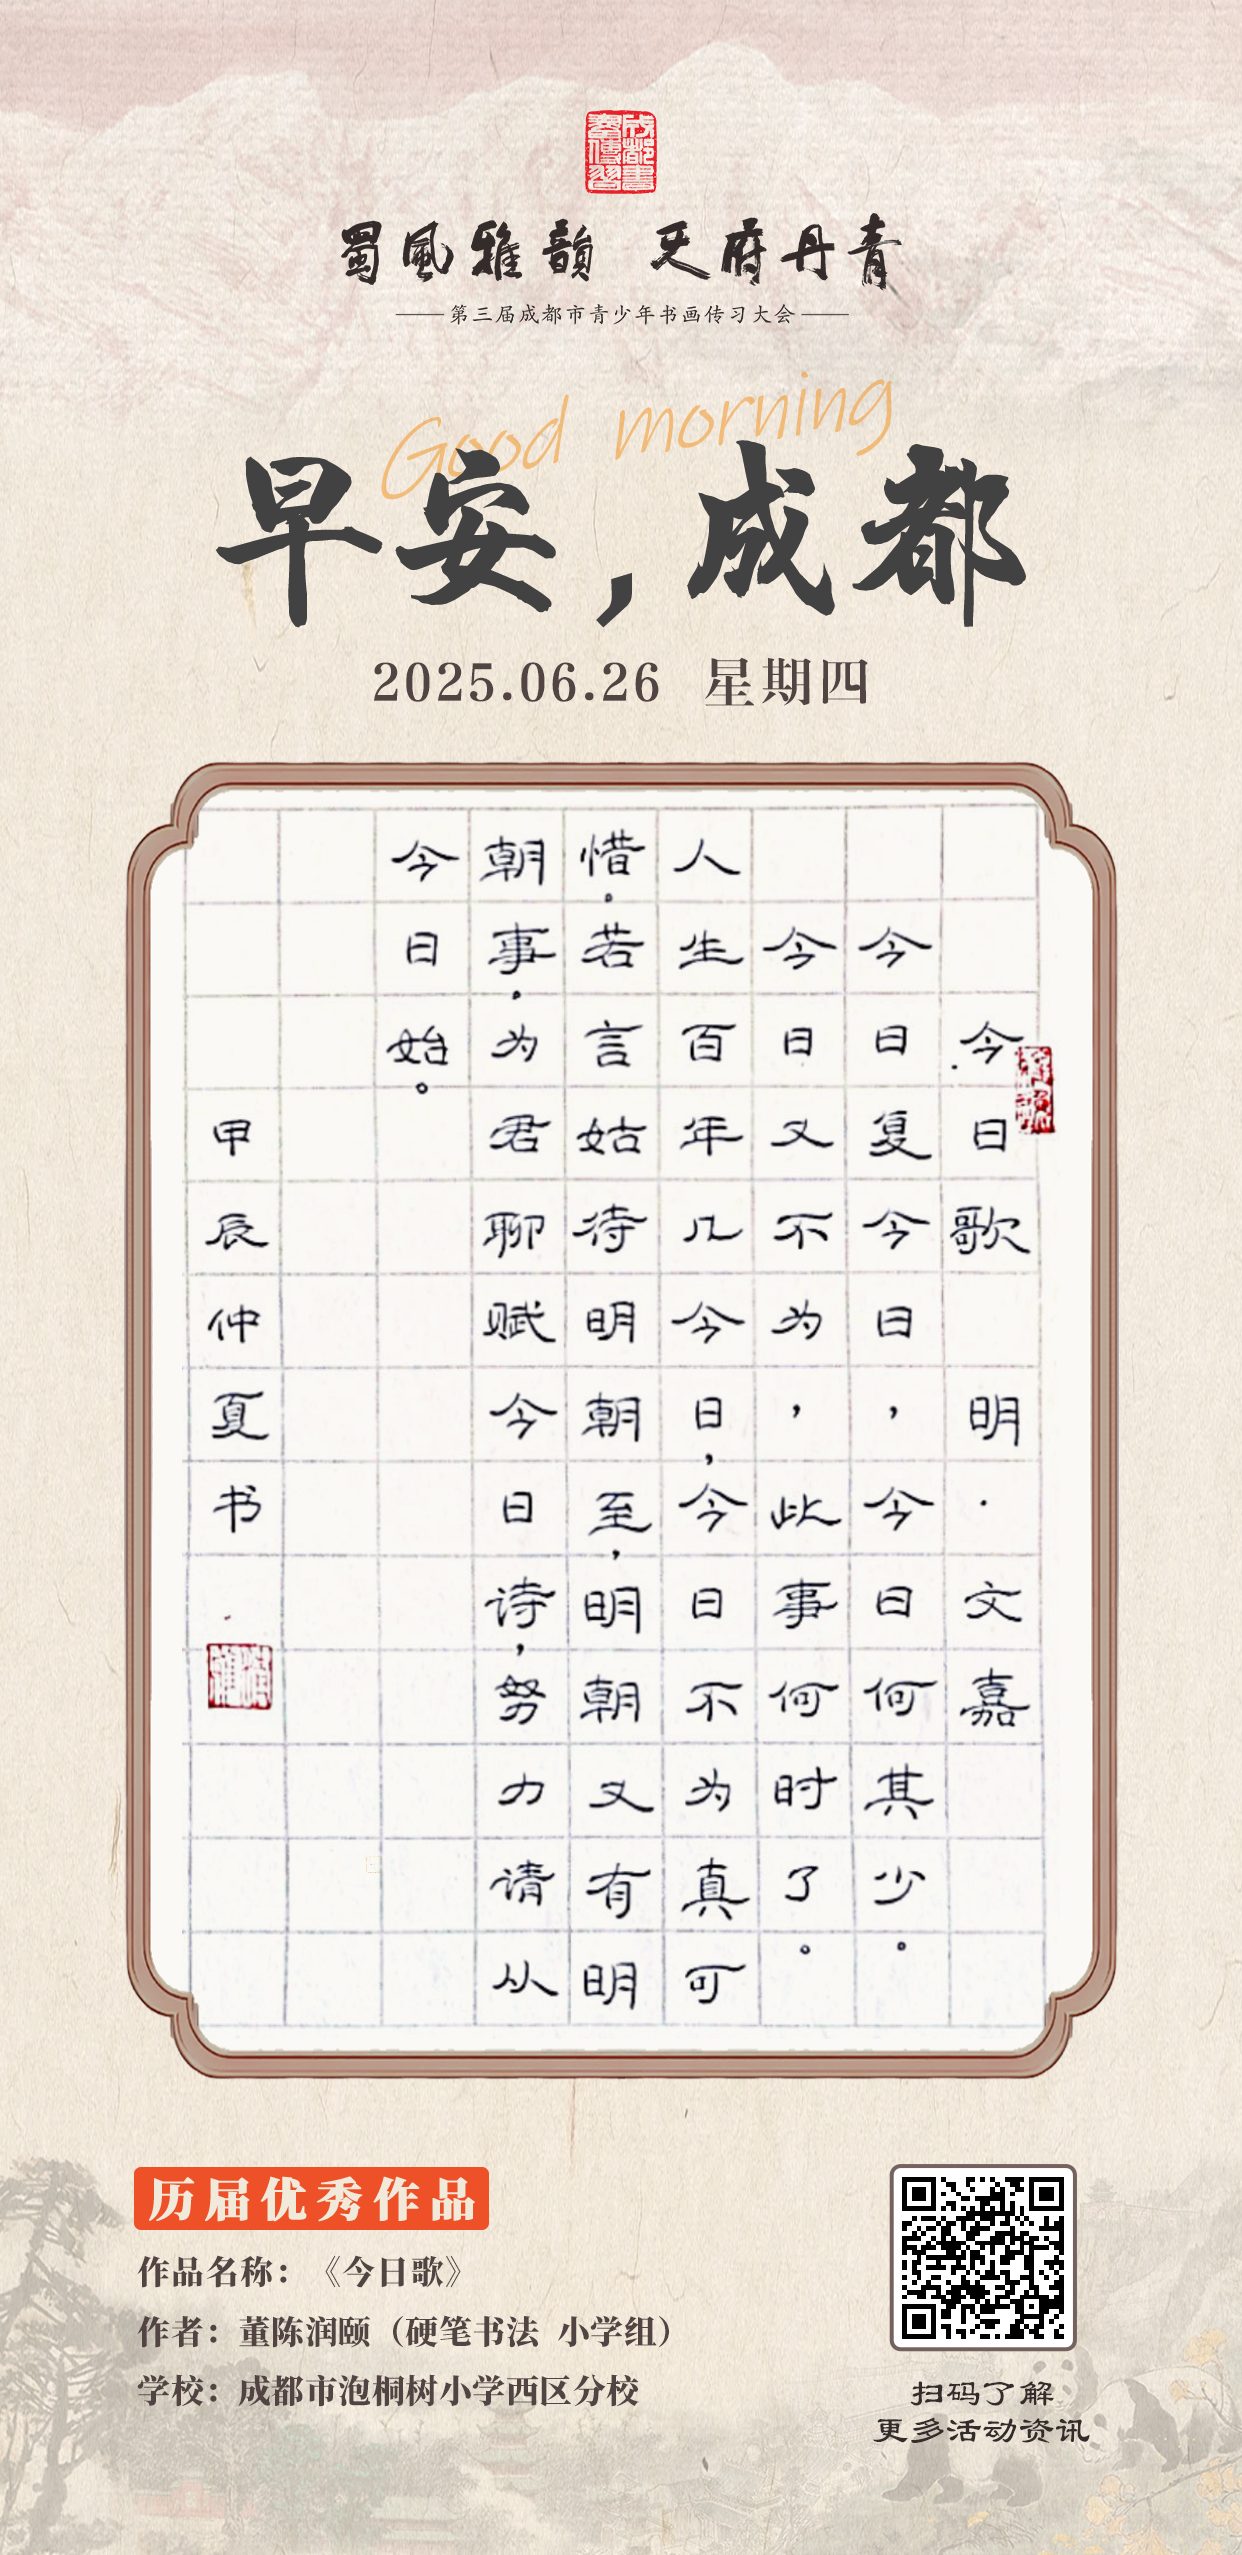 成都书画传习
蜀風雅韻 天府丹青
第三届成都市青少年书画传习大会
Good morning
早安，成都
2025.06.26 星期四
今日歌 明·文嘉
今日复今日，今日何其少。
今日又不为，此事何时了。
人生百年几今日，今日不为真可
惜。若言姑待明朝至，明朝又有明
朝事。为君聊赋今日诗，努力请从
今日始。
甲辰仲夏书
历届优秀作品
作品名称：《今日歌》
作者：董陈润颐（硬笔书法 小学组）
学校：成都市泡桐树小学西区分校
扫码了解
更多活动资讯